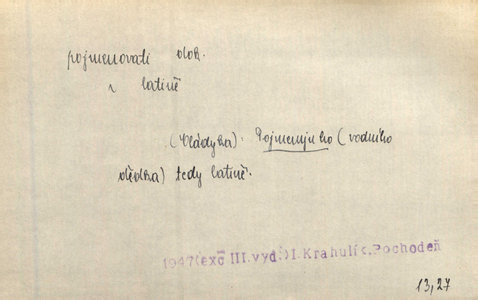 pojmenovati dok.
v latině
(Vládyka). Pojmenuji ho (vodního
dědka) tedy latině.
1947(exc III.vyd.)I.Krahulík.Pochodeň
13,27